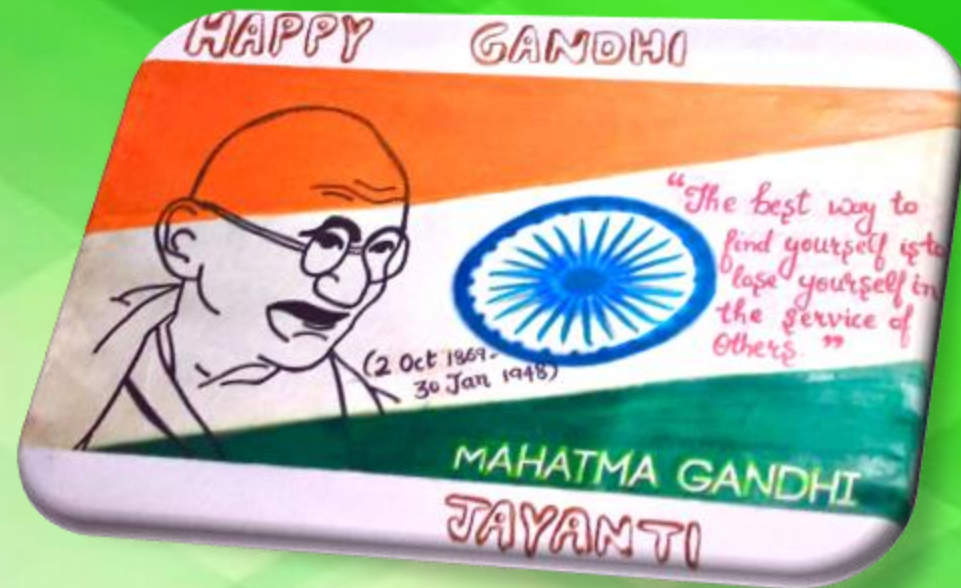 HAPPY GANDHI
“The best way to
find yourself is to
lose yourself in
the service of
Others. ”
(2 Oct 1869-
30 Jan 1948)
MAHATMA GANDHI
JAYANTI